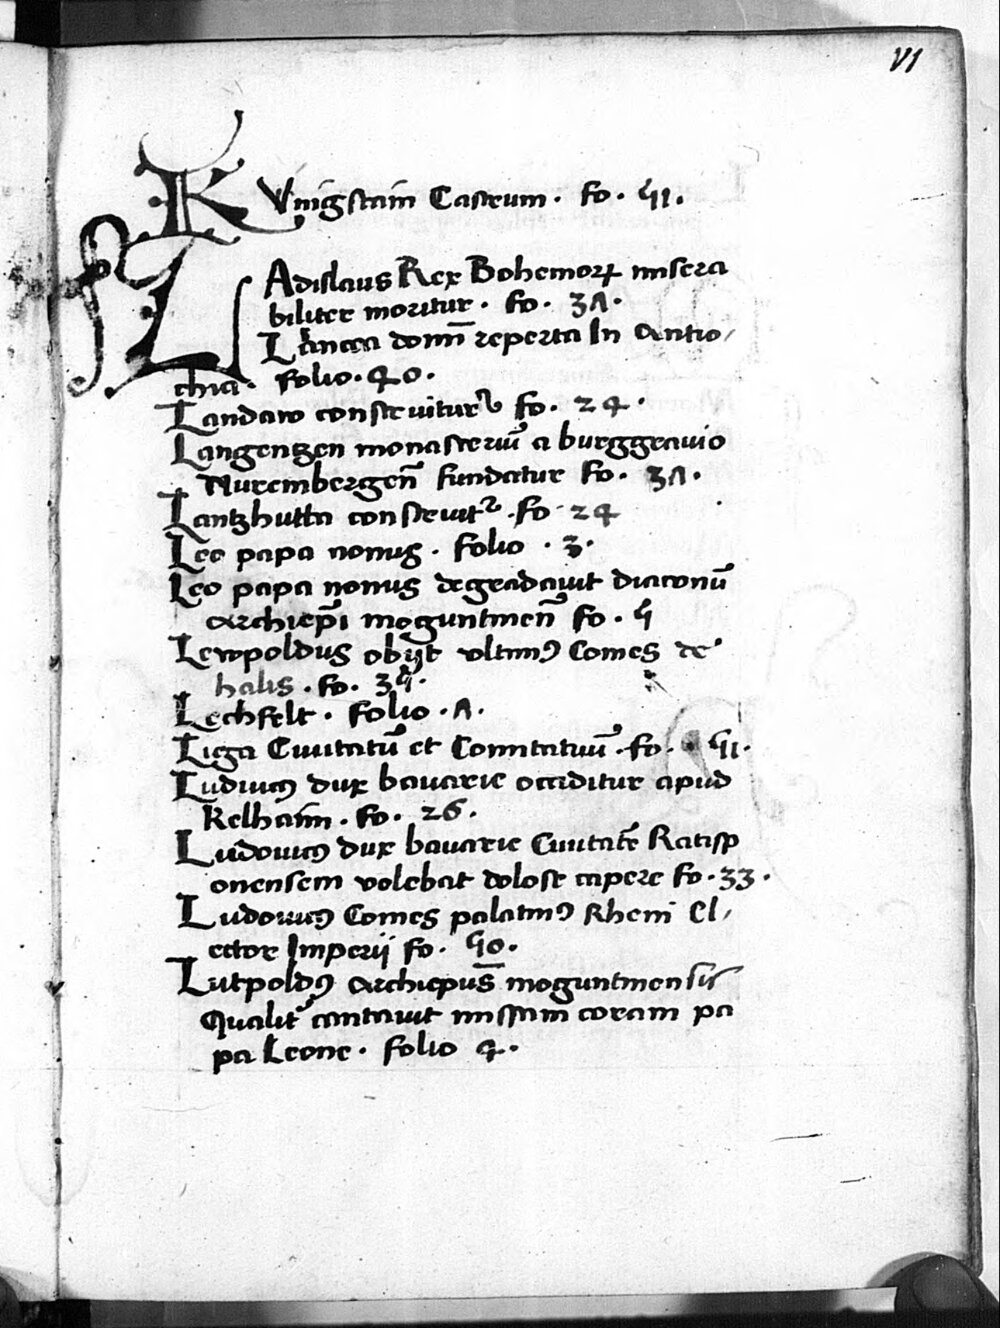 VI
KVnigstain Castrum · fo · 51 ·
LAdislaus Rex Bohemorꝝ misera
biliter moritur · fo · 37 ·
Lancea domī reperta In Antio/
chia · folio · 40 ·
Landaw construitur fo · 24 ·
Langentzen monasteriū a burggravio
Nurembergeñ fundatur fo · 37 ·
Lantzhutta construit᷑ · fo · 24
Leo papa nonus · folio · 3 ·
Leo papa nonus degradavit diaconū
archiep̄i moguntineñ fo · 5
Lewpoldus obijt vltimꝰ Comes de
halis · fo · 35 ·
Lechfelt · folio · 7 ·
Liga Civitatū et Comitatuū · fo · 51 ·
Ludivicꝰ dux bavarie occiditur apud
Kelhaim · fo · 26 ·
Ludovicꝰ dux bavarie Civitatē Ratisp
onensem volebat dolose capere fo · 33 ·
Ludovicꝰ Comes palatinꝰ Rheni El/
ector Imperij fo · 50 ·
Lutpoldꝰ archiepūs moguntinensis
Qualit᷑ cantavit missam coram pa
pa Leone · folio 4 ·